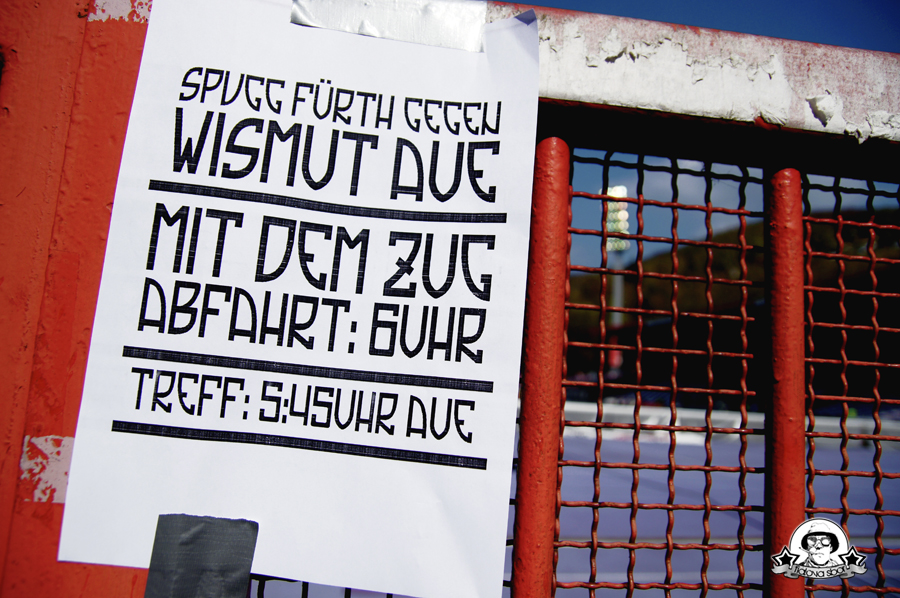 SPVGG FÜRTH GEGEN
WISMUT AUE
MIT DEM ZUG
ABFAHRT: 6UHR
TREFF: 5:45UHR AUE